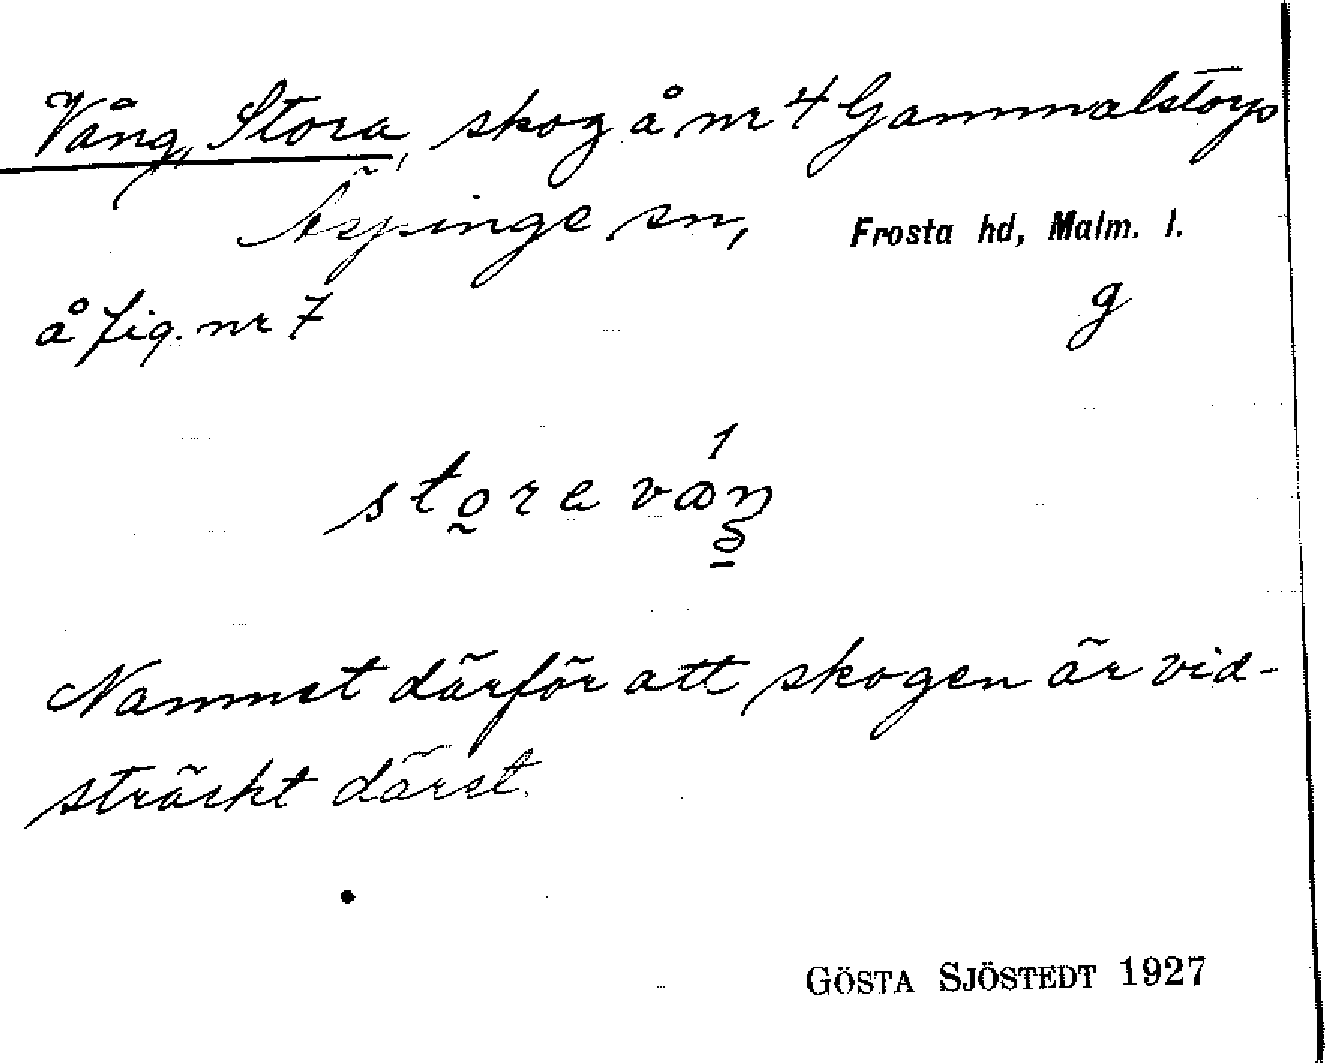 Vång, Stora, skog å nr 4 Gammalstorp
Äspinge sn, Frosta hd, Malm. l.
å fig. nr 7 g
Namnet därför att skogen är vid-
sträckt därst.
GÖSTA SJÖSTEDT 1927